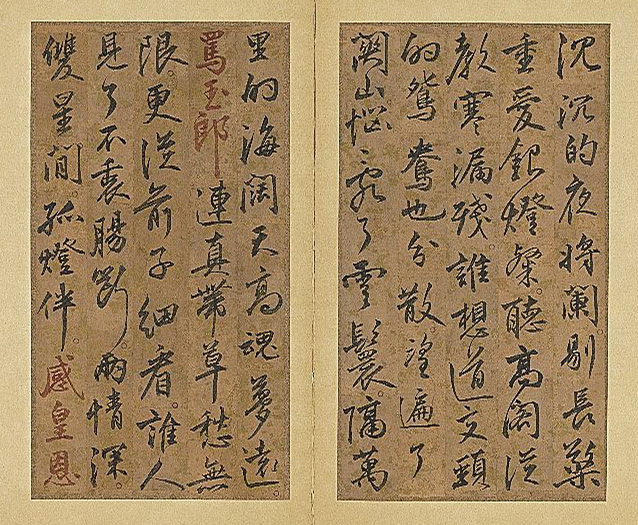 沉沉的夜將闌。剔長檠
重愛銀燈粲。聽高閣從
教寒漏殘。誰想道交頸
的鴛鴦也分散。望遍了
關山惱亂了雲鬟。隔萬
里的海闊天高魂夢遠。
罵玉郎 連真帶草愁無
限。更從前子細看。誰人
見了不衷腸斷。兩情深
雙星間孤燈伴。感皇恩